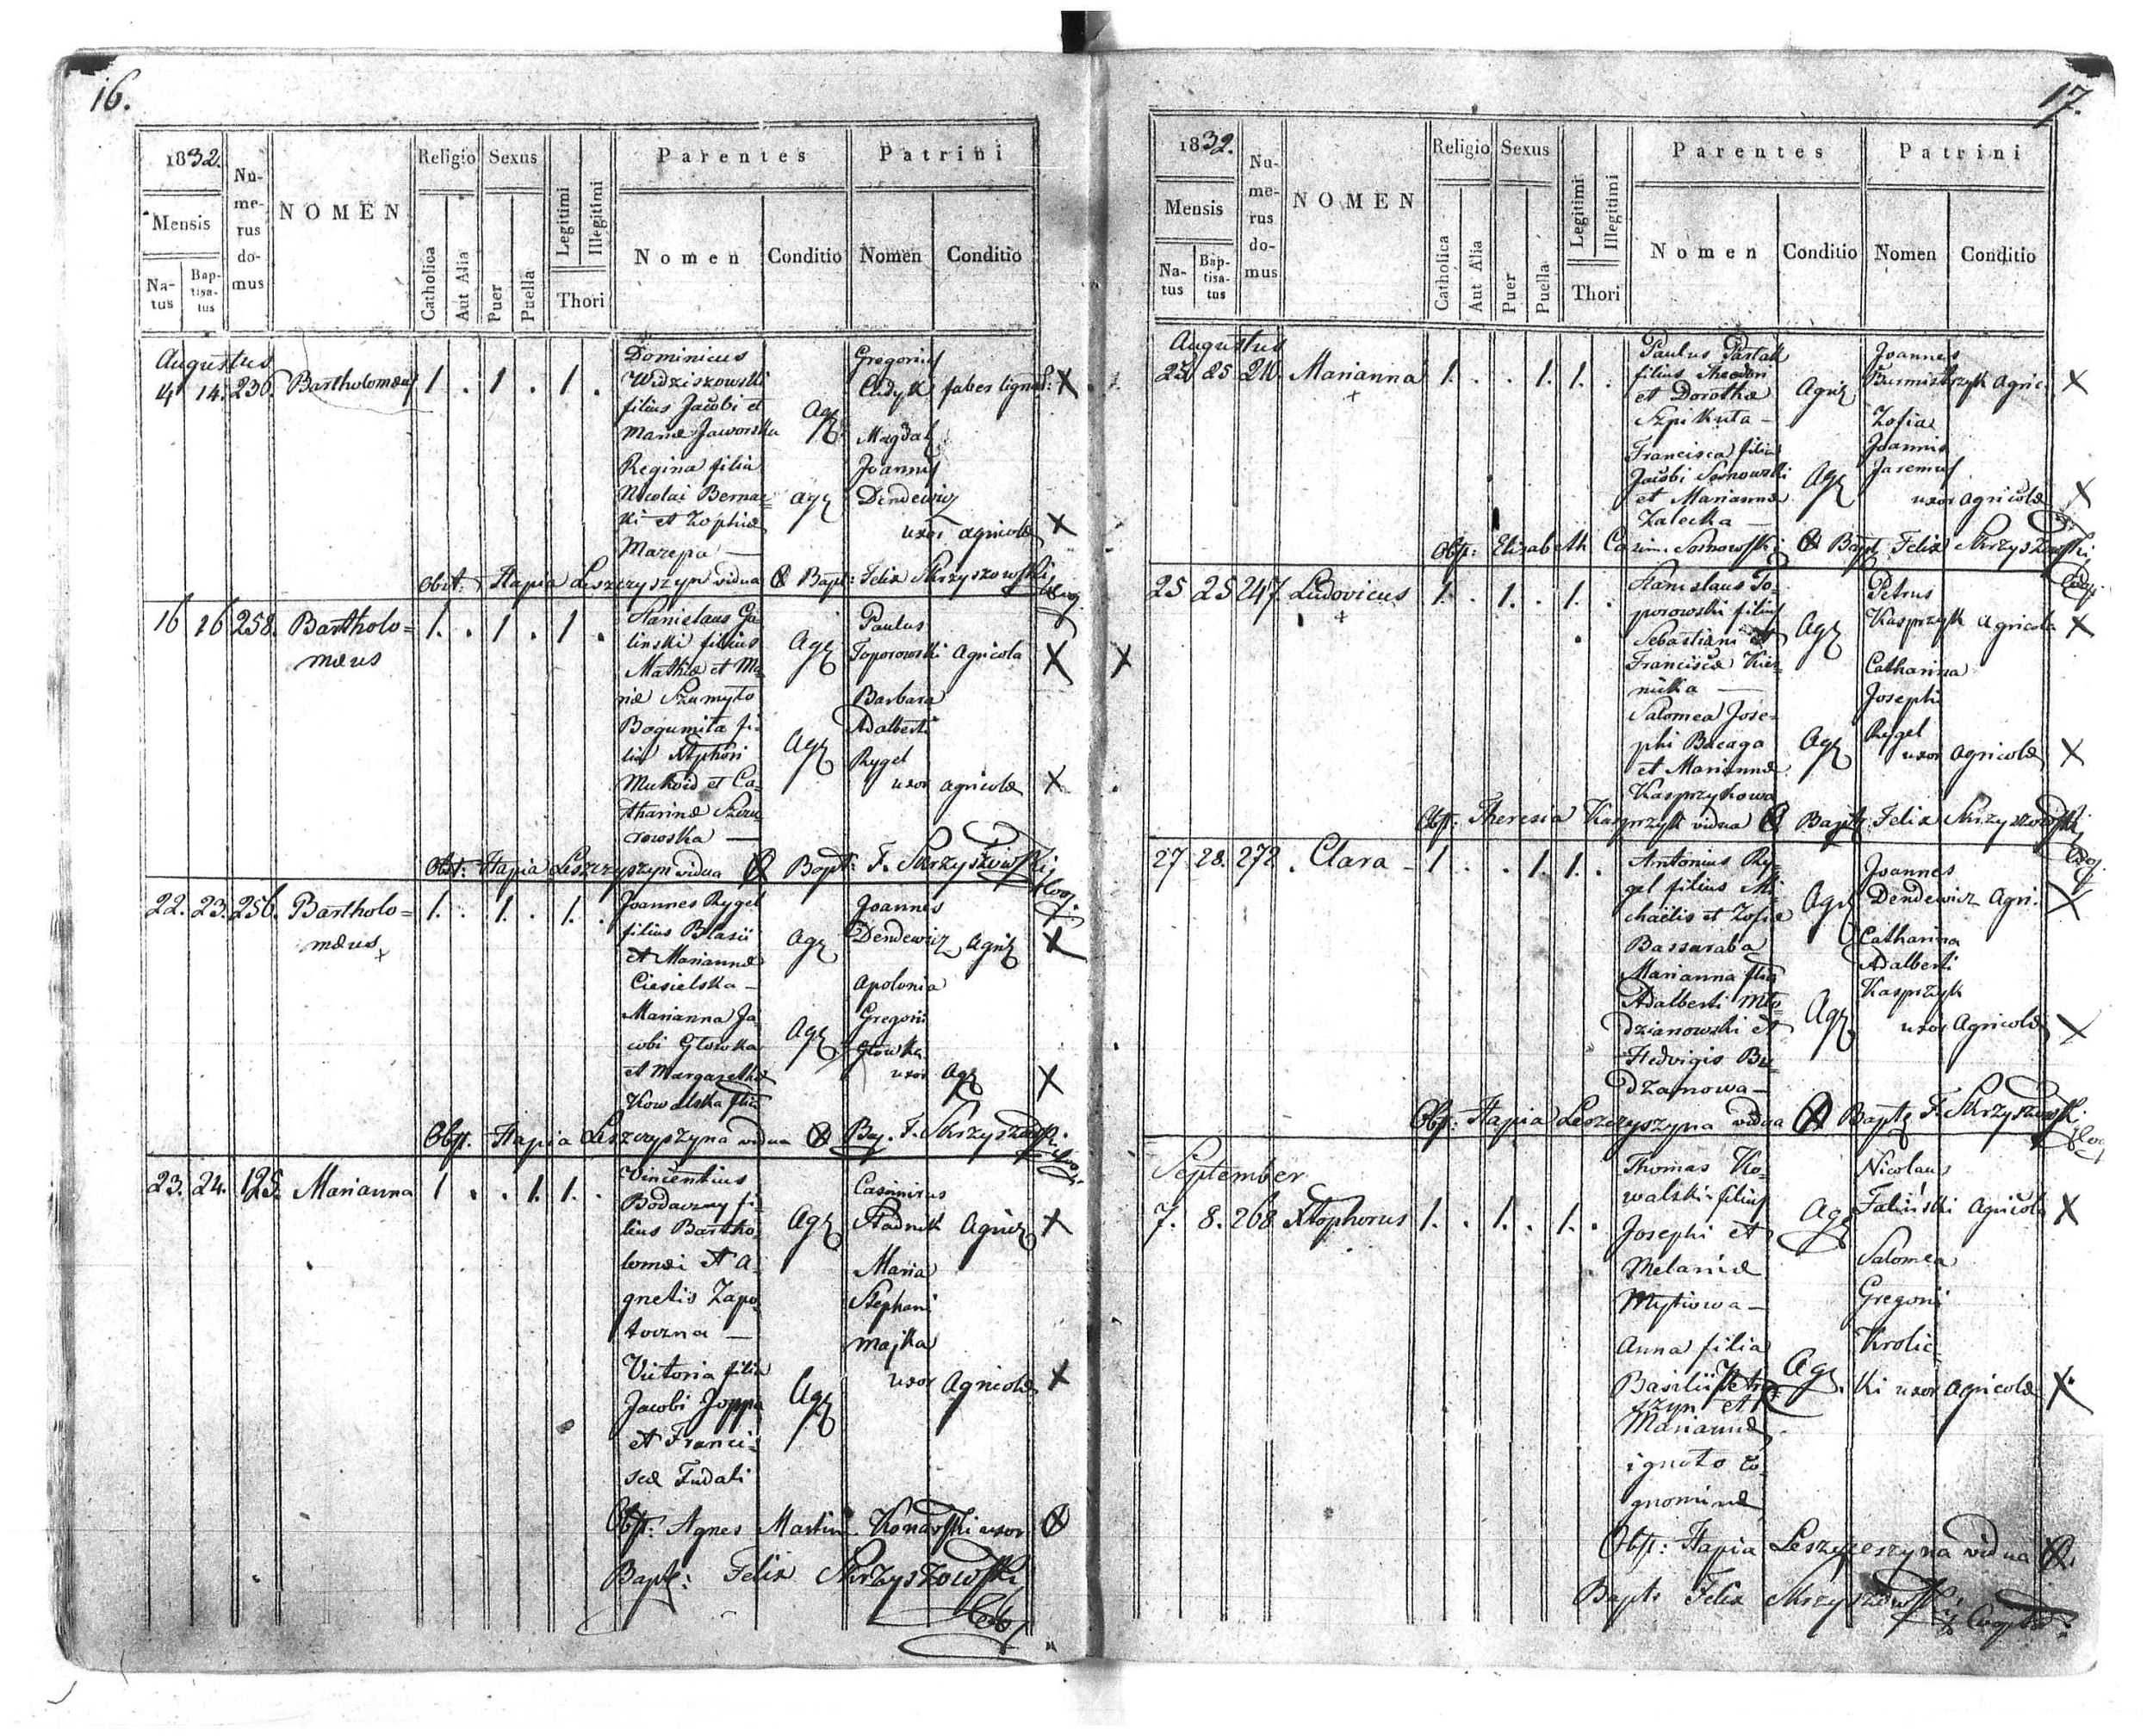 16.
1832.
Mensis
Na-
tus
Bap-
tisa-
tus
Nu-
me-
rus
do-
mus
NOMEN
Religio
Catholica
Aut Alia
Sexus
Puer
Puella
Legitimi
Illegitimi
Thori
Parentes
Nomen
Conditio
Patrini
Nomen
Conditio
Augustus
14. 230. Bartholomæus 1. . 1 . 1 .
Dominicus
Widziszowski
filius Jacobi et
Mariæ Jaworska
Agr
Regina filia
Nicolai Bernac=
ki et Zophiæ
Mazepa —
Agr
Gregorius
faber lignar:
Magdal
Joannis
Dendewicz
uxor agricolæ
Obst: Hapia Leszczyszyn vidua Bapt: Felix Skrzyszowski
16 16 258. Bartholo=
mæus
1. . 1 . 1 .
Stanislaus Ga=
linski filius
Mathiæ et Ma=
riæ Szumyło
Agr
Bogumiła fi=
lia Xtophori
Mukoid et Ca=
tharinæ Szczu
rowska —
Agr
Paulus
Toporowski Agricola
Barbara
Adalberti
Rygel
uxor agricolæ
Obst: Hapia Leszczyszyn vidua Bapt: F. Skrzyszowski
22. 23. 256. Bartholo=
mæus
1. . 1. . 1. .
Joannes Rygel
filius Blasii
et Mariannæ
Ciesielska —
Agr
Marianna Ja
cobi Głowka
et Margarethæ
Kowalska filia
Agr
Joannes
Dendewicz Agric
Apolonia
Gregorii
Głowka
uxor Agr
Obst. Hapia Leszczyszyna vidua Bap. F. Skrzyszowski
23. 24. 125. Marianna 1 . . 1. 1. .
Vincentius
Bodaczny fi=
lius Bartho=
lomæi et A=
gnetis Zapo=
toczna —
Agr
Victoria filia
Jacobi Joppa
et Franci=
scæ Fudali
Agr
Casimirus
Stadnik Agric
Maria
Stephani
Majka
uxor Agricolæ
Obst: Agnes Martini Konarski uxor
Bapt: Felix Skrzyszowski
17.
1832.
Mensis
Na-
tus
Bap-
tisa-
tus
Nu-
me-
rus
do-
mus
NOMEN
Religio
Catholica
Aut Alia
Sexus
Puer
Puella
Legitimi
Illegitimi
Thori
Parentes
Nomen
Conditio
Patrini
Nomen
Conditio
Augustus
25 210. Marianna 1. . . 1. 1. .
Paulus
filius Theodori
et Dorothæ
Szpikuta —
Agric
Francisca filia
Jacobi Sosnowski
et Mariannæ
Zalecka —
Agr
Joannes
Burmistrzyk Agric.
Zofia
Joannis
Jaremus
uxor agricolæ
Obst: Elisabeth Casim. Sosnowski Bapt Felix Skrzyszowski
25 25 247. Ludovicus 1. . 1. . 1. .
Stanislaus To=
porowski filius
Sebastiani et
Franciscæ Kier=
nicka —
Agr
Salomea Jose=
phi Bacaga
et Mariannæ
Kasprzykowa
Agr
Petrus
Kasprzyk Agricola
Catharina
Josephi
Rygel
uxor Agricolæ
Obst: Theresia Kasprzyk vidua Bapt: Felix Skrzyszowski
27 28. 272. Clara — 1. . . 1. 1. .
Antonius Ry=
gel filius Mi=
chaëlis et Zofiæ
Bassaraba
Agr
Marianna filia
Adalberti Mło=
dzianowski et
Hedvigis Bu=
dzanowa —
Agr
Joannes
Dendewicz Agri.
Catharina
Adalberti
Kasprzyk
uxor Agricolæ
Obst: Hapia Leszczyszyna vidua Bapt F. Skrzyszowski
September
7. 8. 268 Xtophorus 1. . 1. . 1. .
Thomas Ko=
walski filius
Josephi et
Melaniæ
Mytiowa —
Agr
Anna filia
Basilii Petry
szyn et
Mariannæ
ignoto co=
gnominæ
Agr.
Nicolaus
Faliński Agricola
Salomea
Gregorii
Krolic=
ki uxor agricolæ
Obst: Hapia Leszczeszyna vidua
Bapt: Felix Skrzyszowski